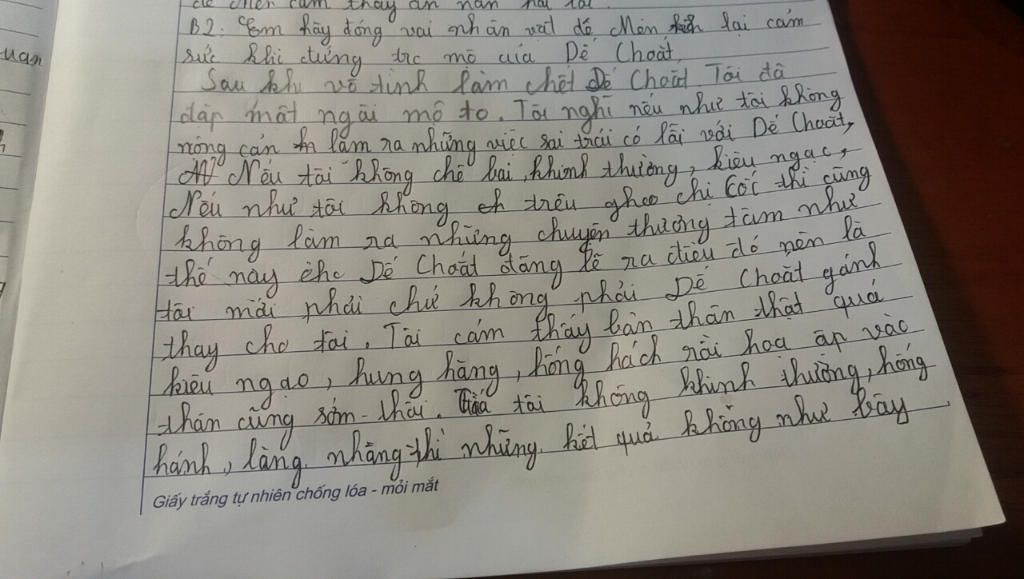 để Mèn cảm thấy ăn năn hối lỗi.
B2: Em hãy đóng vai nhân vật dế Mèn lại cảm
uan
xúc khi đứng trc mộ của Dế Choắt,
Sau khi vô tình làm chết Dế Choắt Tôi đã
đắp một ngôi mộ to. Tôi nghĩ nếu như tôi không
nông cạn làm ra những việc sai trái có lỗi với Dế Choắt,
Nếu tôi không chê bai, khinh thường, kiêu ngạc,
Nếu như tôi không trêu ghẹo chị Cốc thì cũng
không làm ra những chuyện thương tâm như
thế này cho Dế Choắt đáng lẽ ra điều đó nên là
tôi mới phải chứ không phải Dế Choắt gánh
thay cho tôi. Tôi cảm thấy bản thân thật quá
kiêu ngạo, hung hăng, hống hách rồi hoạ ập vào
thân cũng sớm thôi. tôi không khinh thường, hống
hánh, lằng nhằng thì những kết quả không như bây
Giấy trắng tự nhiên chống lóa - mỏi mắt